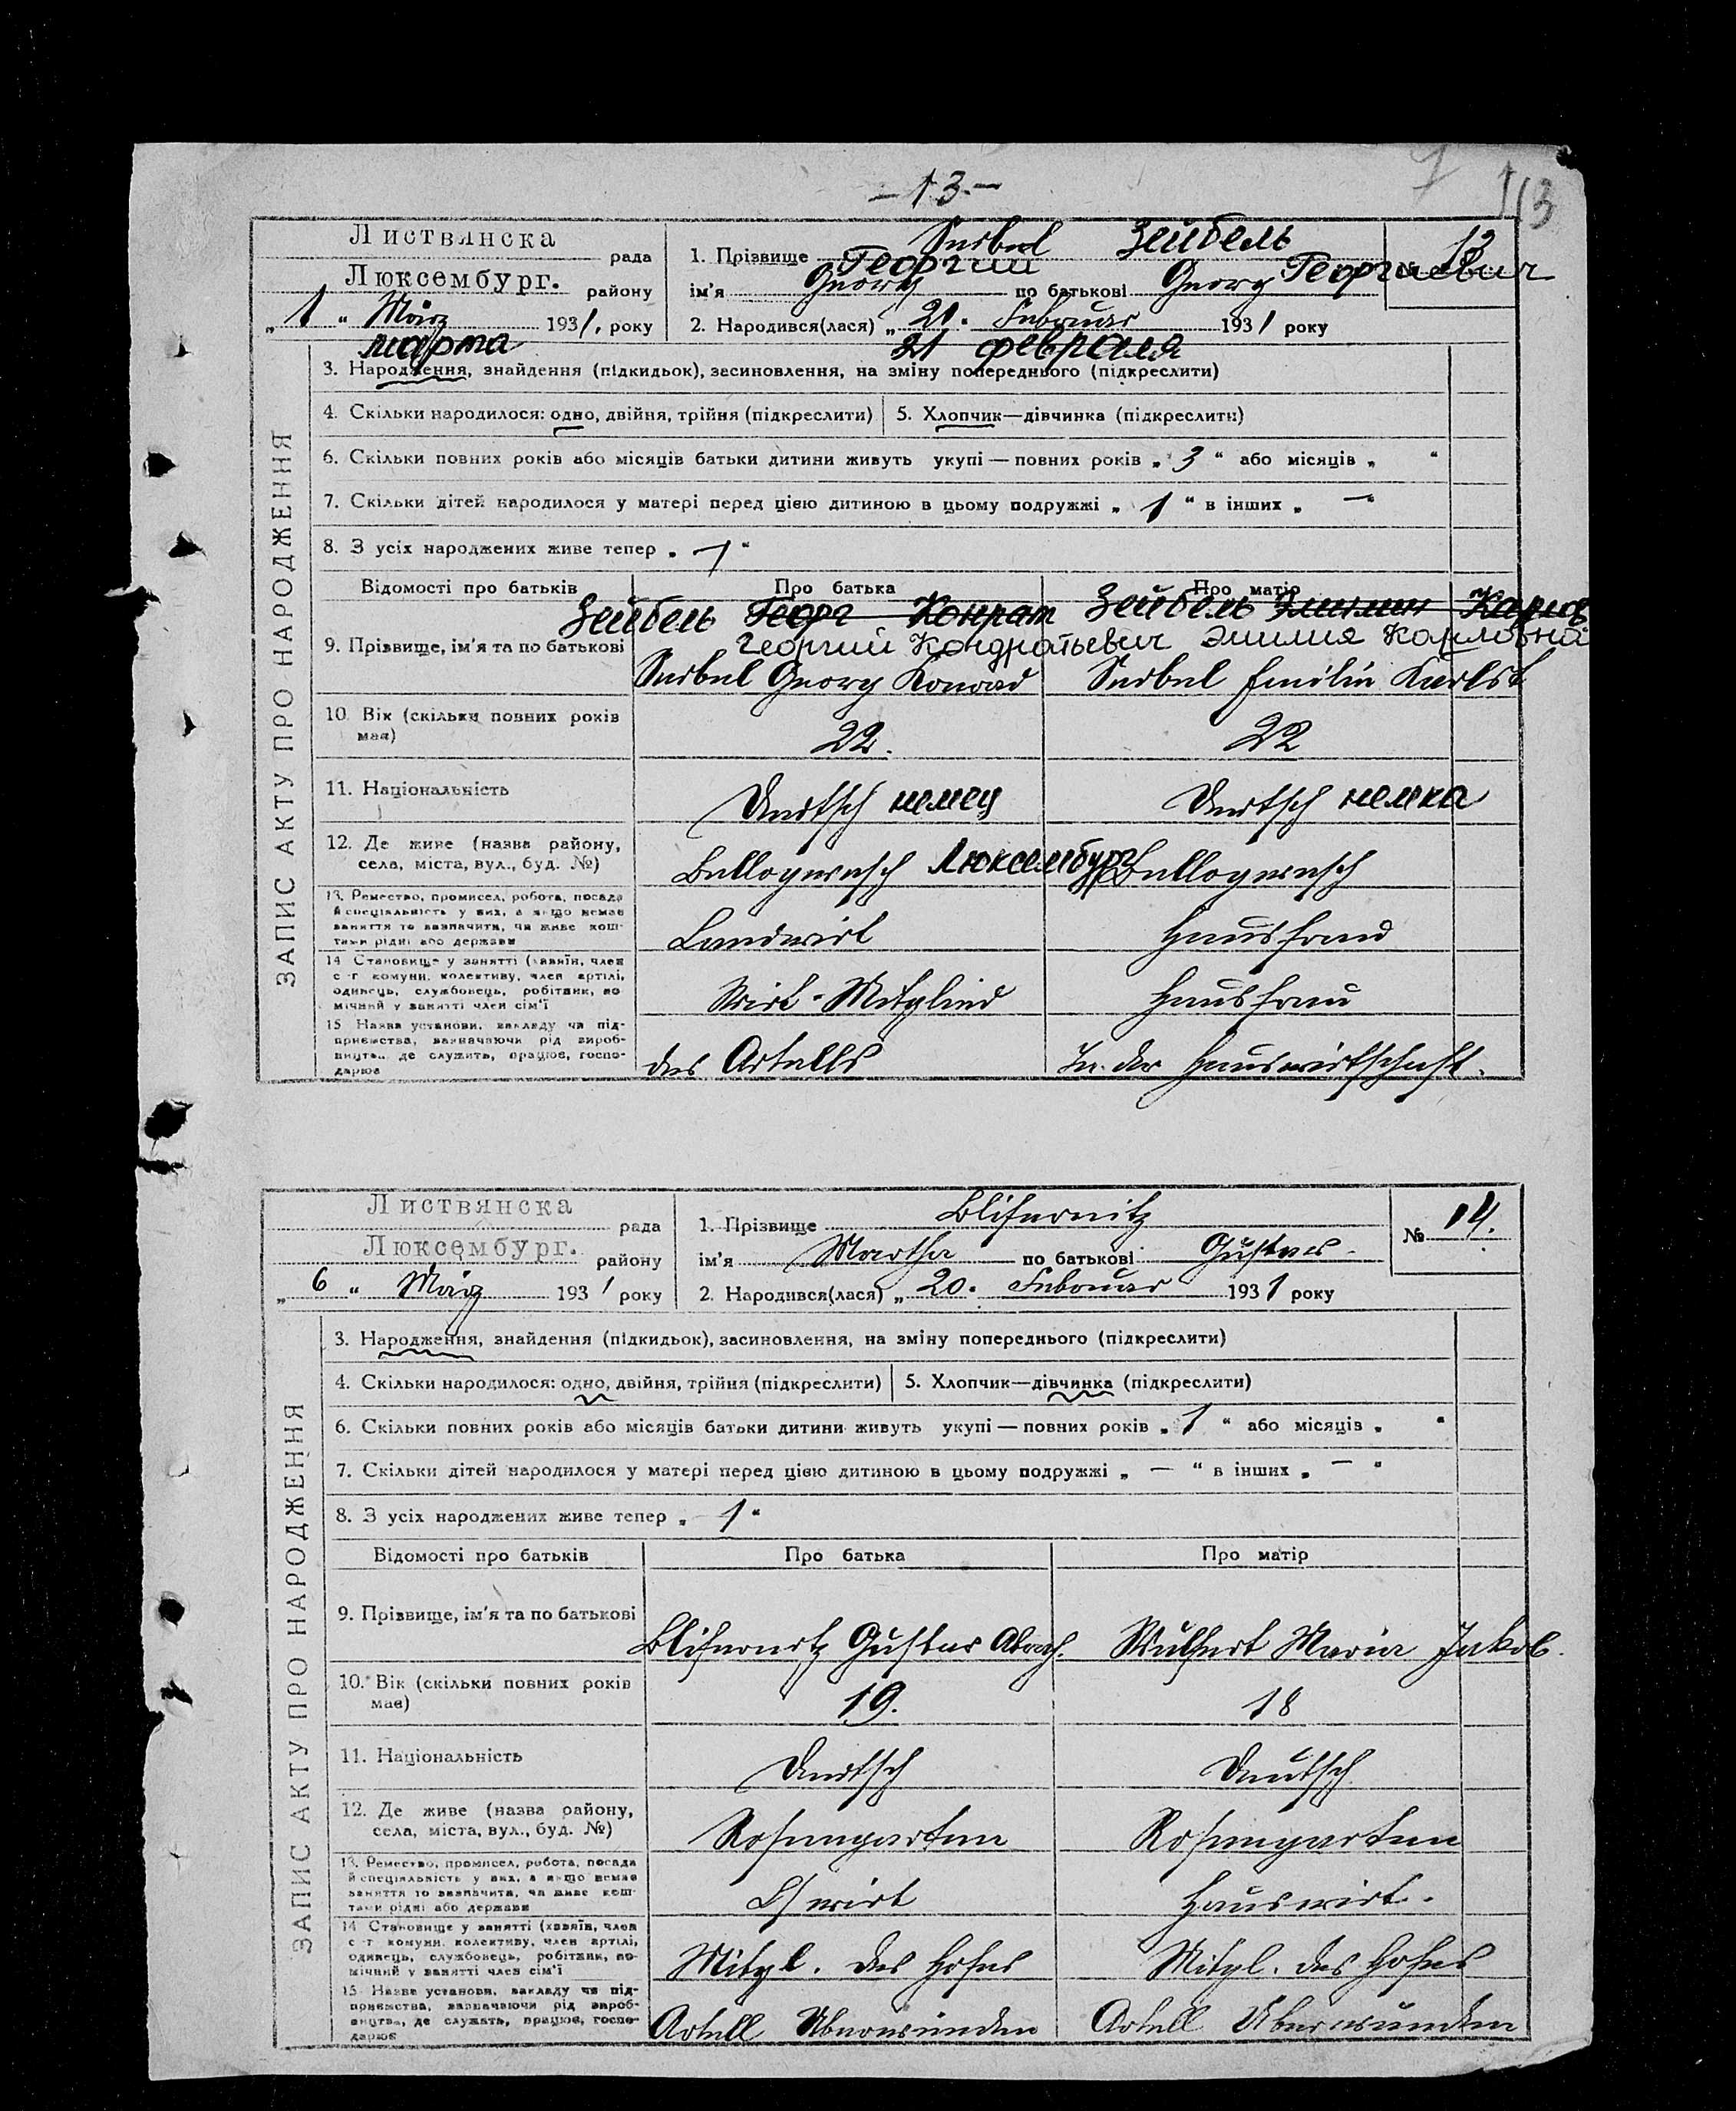 7
113
- 13. -
Листвянска
рада
Люксембург.
району
„ 1 “ März 1931. року
марта
1. Прізвище Seibel Зейбель
Георгий Георгиевич
ім'я Georg по батькові Georg
13
2. Народився(лася) „ 21. Februar 1931 року
21 февраля
ЗАПИС АКТУ ПРО НАРОДЖЕННЯ
3. Народження, знайдення (підкидьок), засиновлення, на зміну попереднього (підкреслити)
4. Скільки народилося: одно, двійня, трійня (підкреслити) 5. Хлопчик—дівчинка (підкреслити)
6. Скільки повних років або місяців батьки дитини живуть укупі — повних років „ 3 “ або місяців „ “
7. Скільки дітей народилося у матері перед цією дитиною в цьому подружжі „ 1 “ в інших „ — “
8. З усіх народжених живе тепер „ 1 “
Відомості про батьків Про батька Про матір
Зейбель Георг Конрат Зейбель Эмилия
Георгий Кондратьевич Эмилия Карловна
9. Прізвище, ім'я та по батькові
Seibel Georg Konrad Seibel Emilie Karlst
10. Вік (скільки повних років має) 22. 22
11. Національність Deutsch немец Deutsch немка
12. Де живе (назва району, села, міста, вул., буд. №)
Люксембург
13. Ремество, промисел, робота, посада й спеціяльність у них, а якщо немає заняття то зазначити, чи живе коштами рідні або держави
Landwirt Hausfrau
14. Становище у занятті (хазяїн, член с.-г. комуни, колективу, член артілі, одинець, службовець, робітник, помічний у занятті член сім'ї
Wirt - Mitglied Hausfrau
15. Назва установи, закладу чи підприємства, зазначаючи рід виробництва, де служить, працює, господарює
des Artells In der Hauswirtschaft.
Листвянска
рада
Люксембург.
району
„ 6 “ März 1931 року
1. Прізвище
ім'я Martha по батькові Gustav
№ 14.
2. Народився(лася) „ 20. Februar 1931 року
ЗАПИС АКТУ ПРО НАРОДЖЕННЯ
3. Народження, знайдення (підкидьок), засиновлення, на зміну попереднього (підкреслити)
4. Скільки народилося: одно, двійня, трійня (підкреслити) 5. Хлопчик—дівчинка (підкреслити)
6. Скільки повних років або місяців батьки дитини живуть укупі — повних років „ 1 “ або місяців „ “
7. Скільки дітей народилося у матері перед цією дитиною в цьому подружжі „ — “ в інших „ — “
8. З усіх народжених живе тепер „ 1 “
Відомості про батьків Про батька Про матір
9. Прізвище, ім'я та по батькові
Gustav Wulfert Maria Jakob.
10. Вік (скільки повних років має) 19. 18
11. Національність Deutsch Deutsch
12. Де живе (назва району, села, міста, вул., буд. №)
Rosengarten Rosengarten
13. Ремество, промисел, робота, посада й спеціяльність у них, а якщо немає заняття то зазначити, чи живе коштами рідні або держави
Hauswirt.
14. Становище у занятті (хазяїн, член с.-г. комуни, колективу, член артілі, одинець, службовець, робітник, помічний у занятті член сім'ї
Mitgl. des Hofes Mitgl. des Hofes
15. Назва установи, закладу чи підприємства, зазначаючи рід виробництва, де служить, працює, господарює
Artell Überwinden Artell Überwinden